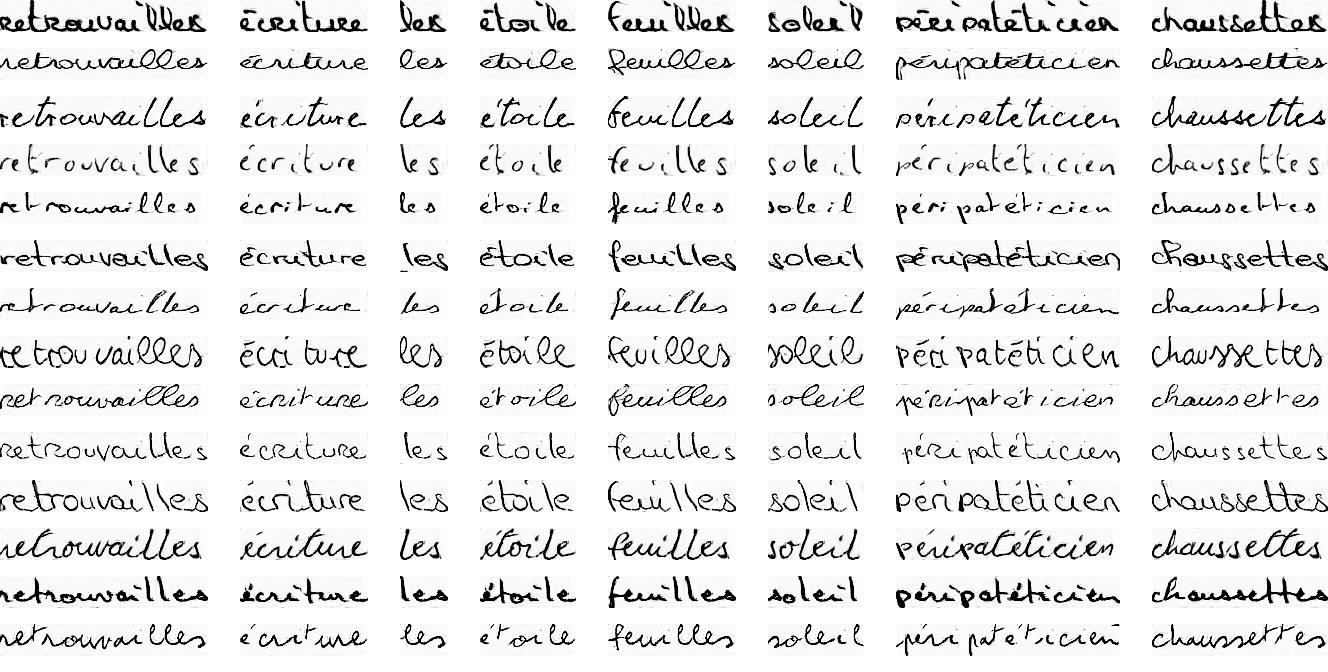 retrouvailles écriture les étoile feuilles soleil péripatéticien chaussettes
retrouvailles écriture les étoile feuilles soleil péripatéticien chaussettes
retrouvailles écriture les étoile feuilles soleil péripatéticien chaussettes
retrouvailles écriture les étoile feuilles soleil péripatéticien chaussettes
retrouvailles écriture les étoile feuilles soleil péripatéticien chaussettes
retrouvailles écriture les étoile feuilles soleil péripatéticien chaussettes
retrouvailles écriture les étoile feuilles soleil péripatéticien chaussettes
retrouvailles écriture les étoile feuilles soleil péripatéticien chaussettes
retrouvailles écriture les étoile feuilles soleil péripatéticien chaussettes
retrouvailles écriture les étoile feuilles soleil péripatéticien chaussettes
retrouvailles écriture les étoile feuilles soleil péripatéticien chaussettes
retrouvailles écriture les étoile feuilles soleil péripatéticien chaussettes
retrouvailles écriture les étoile feuilles soleil péripatéticien chaussettes
retrouvailles écriture les étoile feuilles soleil péripatéticien chaussettes